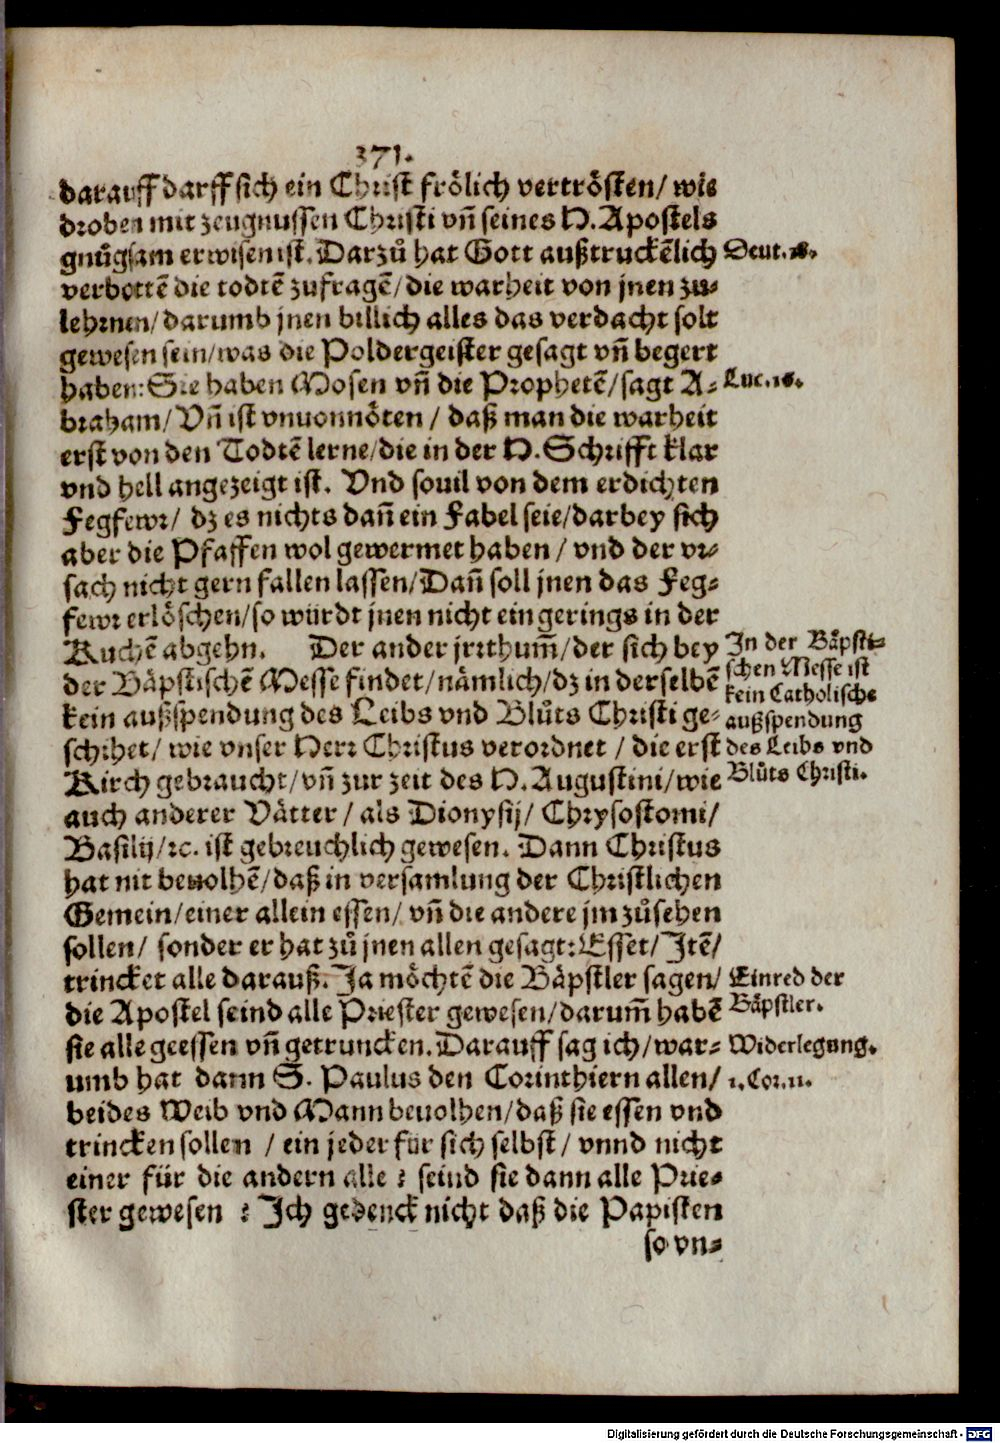 371.
darauff darff sich ein Christ frölich vertrösten/ wie
droben mit zeugnussen Christi vñ seines H. Apostels
gnůgsam erwisen ist. Darzů hat Gott außtruckẽlich
Deut. 18.
verbottẽ die todtẽ zufragẽ/ die warheit von jnen zu-
lehrnen/ darumb jnen billich alles das verdacht solt
gewesen sein/ was die Poldergeister gesagt vñ begert
haben: Sie haben Mosen vñ die Prophetẽ/ sagt A-
Luc. 16.
braham/ Vñ ist vnuonnöten / daß man die warheit
erst von den Todtẽ lerne/ die in der H. Schrifft klar
vnd hell angezeigt ist. Vnd souil von dem erdichten
Fegfewr/ dz es nichts dañ ein Fabel seie/ darbey sich
aber die Pfaffen wol gewermet haben / vnd der vr-
sach nicht gern fallen lassen/ Dañ soll jnen das Feg-
fewr erlöschen/ so würdt jnen nicht ein gerings in der
Kuchẽ abgehn. Der ander jrrthum̃/ der sich bey
der Bäpstischẽ Messe findet/ nämlich/ dz in derselbẽ
kein außspendung des Leibs vnd Blůts Christi ge-
schihet/ wie vnser Herr Christus verordnet / die erst
Kirch gebraucht/ vñ zur zeit des H. Augustini/ wie
In der Bäpsti-
schen Messe ist
kein Catholische
außspendung
des Leibs vnd
Blůts Christi.
auch anderer Vätter / als Dionysij/ Chrysostomi/
Basilij/ ꝛc. ist gebreuchlich gewesen. Dann Christus
hat nit beuolhẽ/ daß in versamlung der Christlichen
Gemein/ einer allein essen/ vñ die andere jm zůsehen
sollen/ sonder er hat zů jnen allen gesagt: Esset/ Jtẽ/
trincket alle darauß. Ja möchtẽ die Bäpstler sagen/
die Apostel seind alle Priester gewesen/ darum̃ habẽ
Einred der
Bäpstler.
sie alle geessen vñ getruncken. Darauff sag ich/ war-
Widerlegung.
umb hat dann S. Paulus den Corinthiern allen/
1. Cor. 11.
beides Weib vnd Mann beuolhen/ daß sie essen vnd
trincken sollen / ein jeder für sich selbst/ vnnd nicht
einer für die andern alle ? seind sie dann alle Prie-
ster gewesen ? Ich gedenck nicht daß die Papisten
so vn-
Digitalisierung gefördert durch die Deutsche Forschungsgemeinschaft - DFG